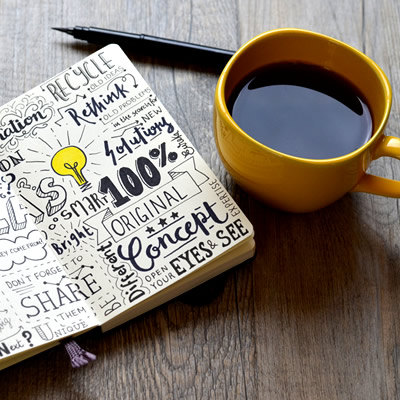 RECYCLE
OLD IDEAS
Rethink
OLD PROBLEMS
in the search of
NEW
Solutions
SMART
100%
ORIGINAL
Bright
Concept
EXPERTISE
Different
BE
OPEN
YOUR
EYES & SEE
EY COME FROM?
DON'T FORGET TO
SHARE
THEM
UNIQUE
Next?